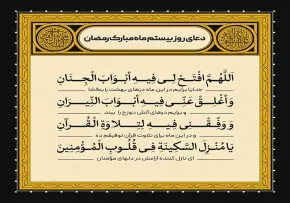 دعای روز بیستم ماه مبارک رمضان
اَللّهُمَّ افْتَحْ لی فیهِ أبْوابَ الْجِنانِ
خدایا برایم در این ماه درهای بهشت را بگشا
وَأغْلِقْ عَنّی فیهِ أبْوابَ النّیرانِ
و برایم درهای آتش دوزخ را ببند
وَوَفّقْنی فیهِ لِتِلاوَةِ الْقُرآنِ
و در این ماه برای تلاوت قرآن توفیقم ده
یامُنْزِلَ السّکینَةِ فی قُلُوبِ الْمُؤْمِنینَ
ای نازل کننده آرامش در دلهای مؤمنان